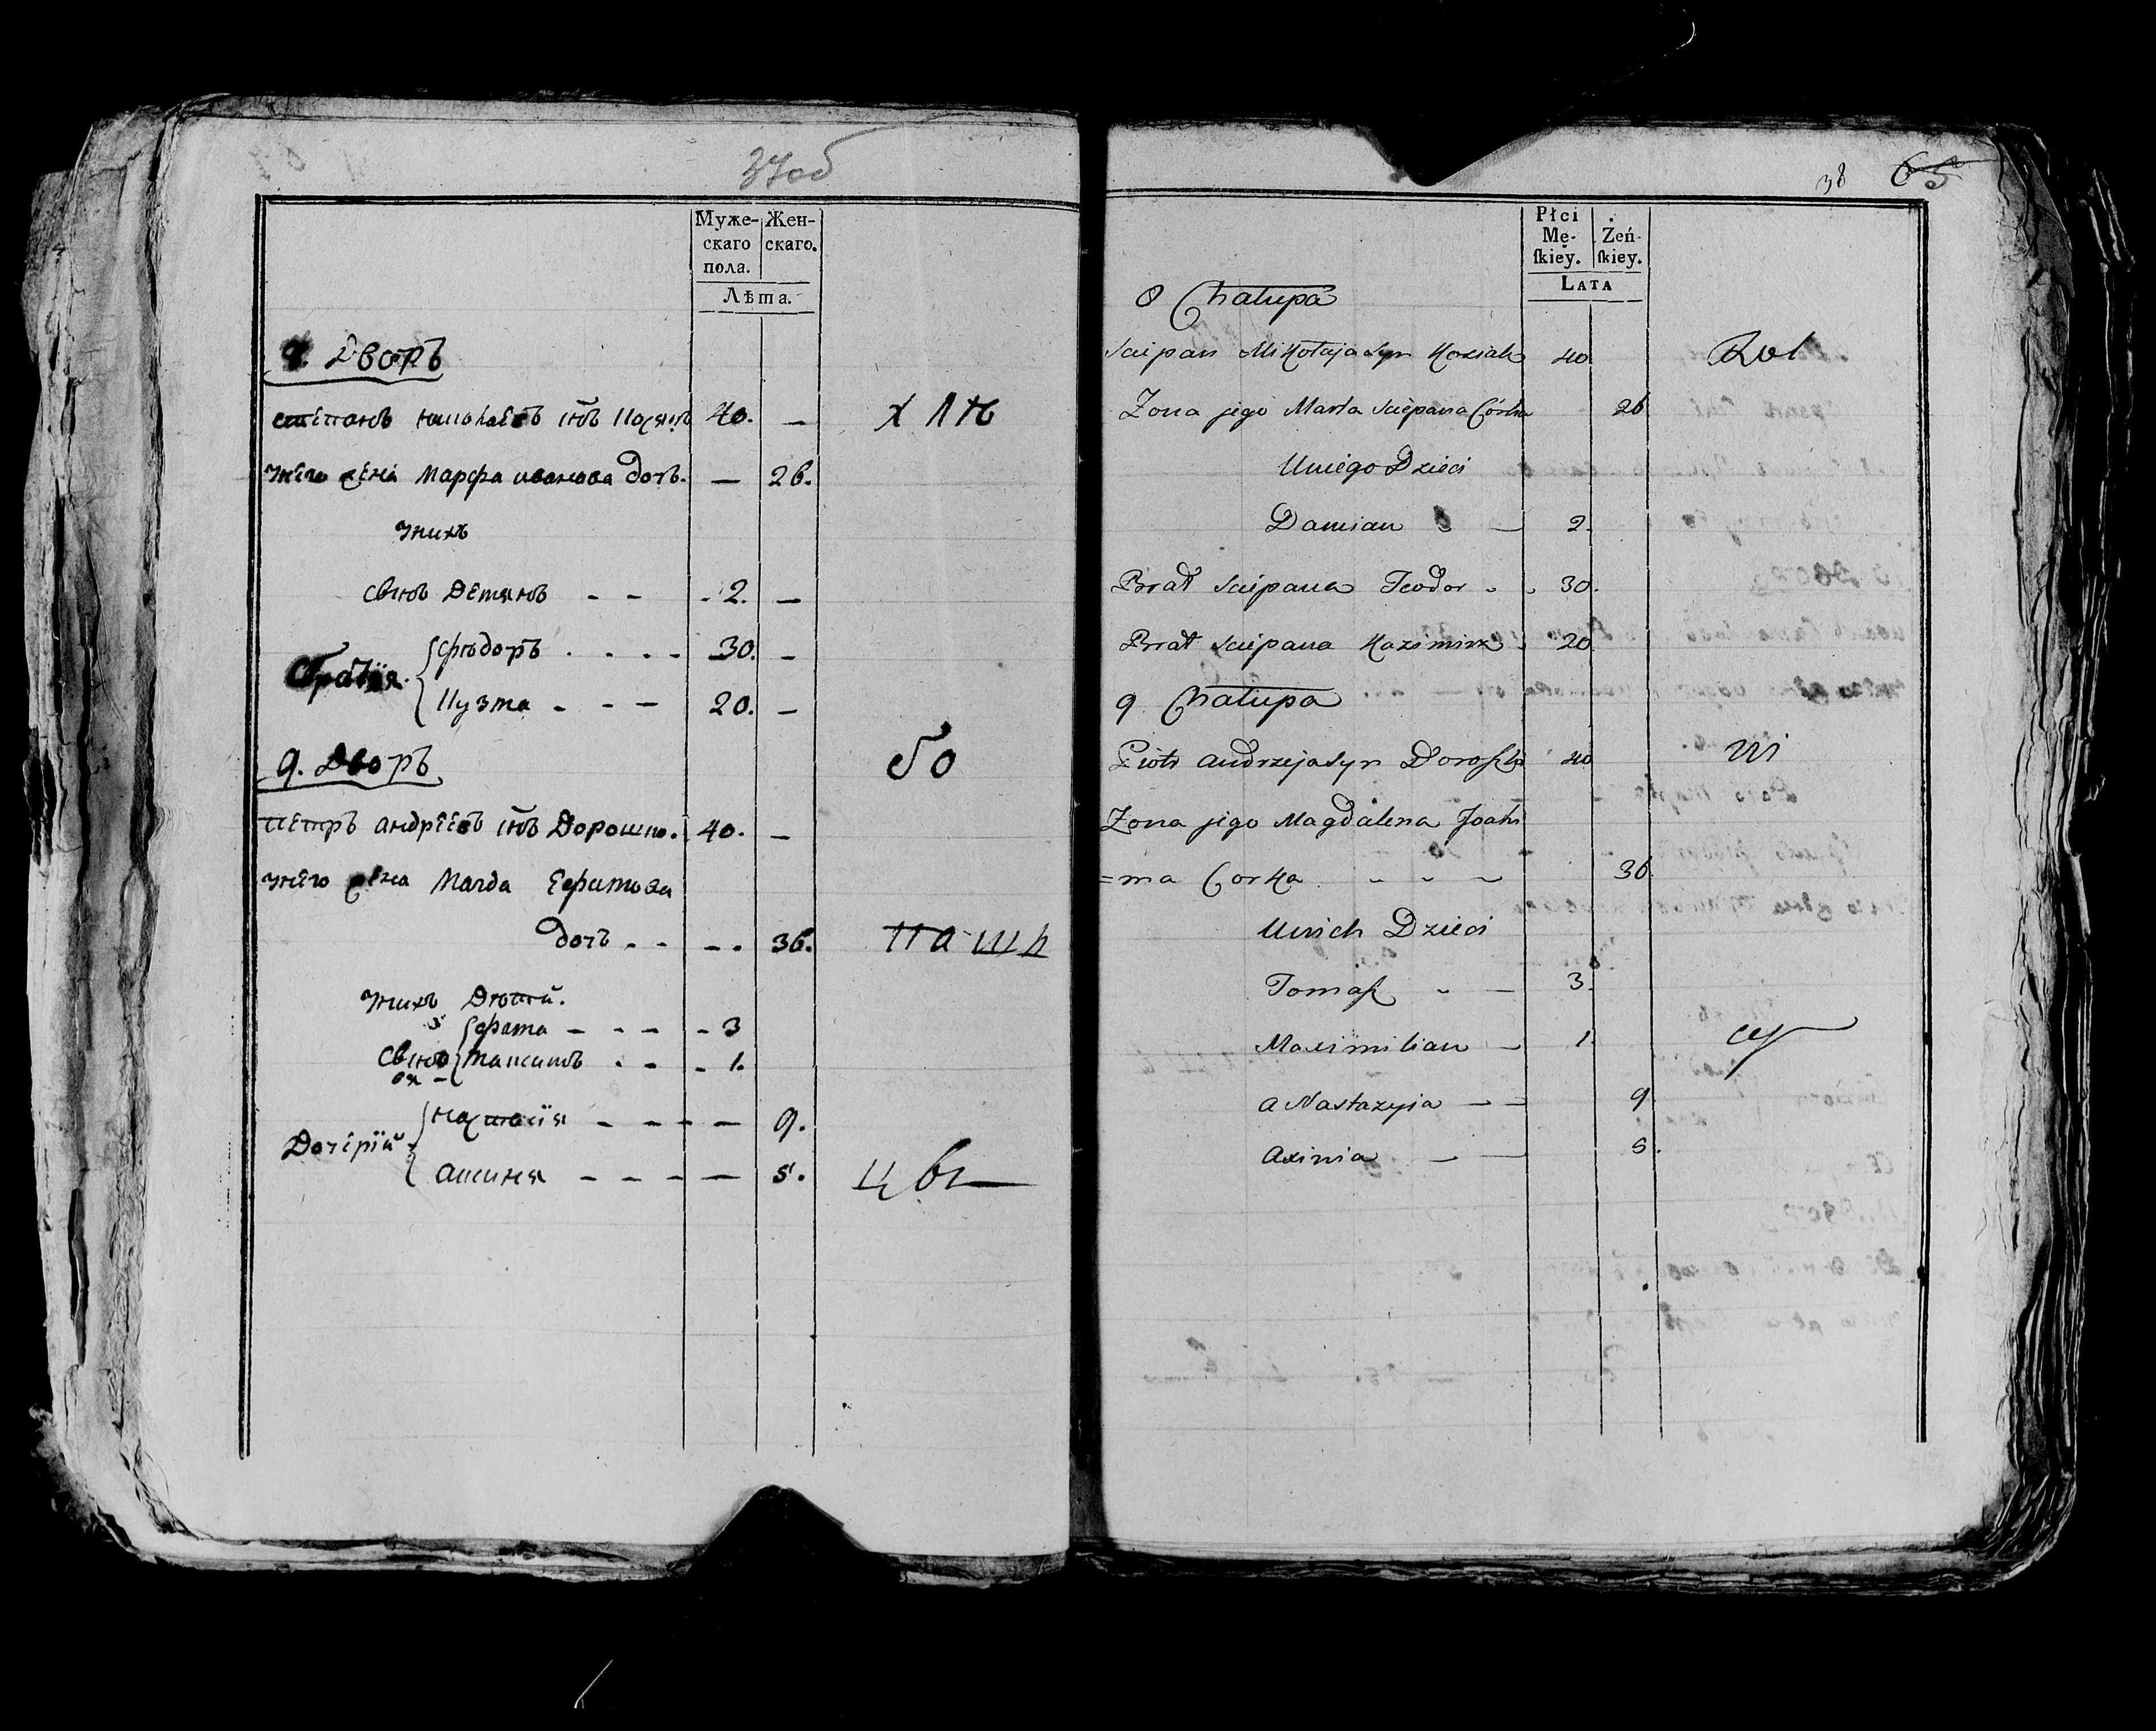 37об
Муже-
скаго
пола.
Жен-
скаго.
Лѣта.
8. Дворъ
степанъ николаевъ снъ Козякъ 40. —
унего жена Марфа иванова дочь. — 26.
хлѣ
унихъ
сынъ Демянъ - - - 2. —
братья
Федоръ . . . . 30. —
Кузма - - — 20. —
9. Дворъ
бо
Петръ андреевъ снъ Дорошко. 40. —
унего жена Магда Ефимова
дочь - - - - 36.
паш
унихъ Дети.
Фома — - - — - 3
Максимъ . - - 1.
Дочерий
настасия - - - - — 9.
аксиня - - - - — 5.
цы
38 65
Płci
Mę-
ſkiey.
Żeń-
ſkiey.
Lata
8 Chałupa
Sciepan Mikołaja Syn Koziak 40
Rol
Zona jego Marta Sciepana Córka 26
Uniego Dzieci
Damian — 2.
Brat Sciepana Teodor 30.
Brat Sciepana Kazimirz 20
9 Chałupa
Piotr Andrzeja Syn Doroſzko 40
ni
Zona jego Magdalena Joahi
=ma Corka 36
Unich Dzieci
Tomaſz — 3.
Maximilian — 1.
cy
a Nastazyia — — 9
Axinia — — 5.